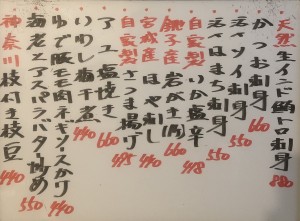 天然生インド鮪トロ刺身 880
かつお刺身 660
活〆ソイ刺身 550
活〆はまち刺身 550
自家製いか塩辛 418
銚子産岩がき 660
宮城産ほや刺し 440
自家製さつま揚げ 495
アユ塩焼き 660
いわし梅干煮 440
ゆで豚モモ肉ネギソースかけ 440
海老とアスパラバター炒め 550
神奈川枝付き枝豆 440